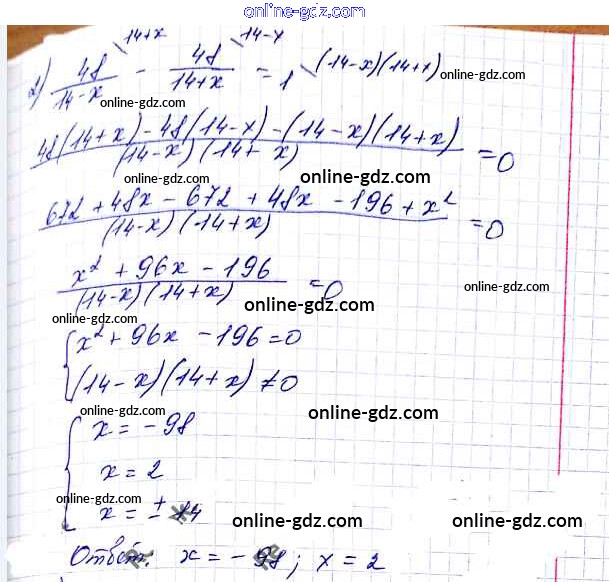 online-gdz.com
2) 48/(14-x) \14+x - 48/(14+x) \14-x = 1 \(14-x)(14+x) online-gdz.com
online-gdz.com online-gdz.com
(48(14+x) - 48(14-x) - (14-x)(14+x))/((14-x)(14+x)) = 0
online-gdz.com online-gdz.com
(672 + 48x - 672 + 48x - 196 + x²)/((14-x)(14+x)) = 0
online-gdz.com
(x² + 96x - 196)/((14-x)(14+x)) = 0
online-gdz.com online-gdz.com
{ x² + 96x - 196 = 0
(14-x)(14+x) ≠ 0
online-gdz.com online-gdz.com
{ x = -98
x = 2
online-gdz.com
x = ± 14
online-gdz.com online-gdz.com
Ответ: x = -98; x = 2